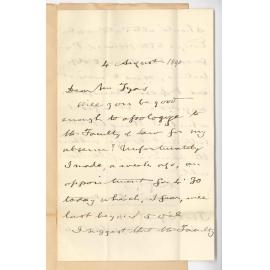 4 August 1890
Dear Mr Tyas
Will you be good
enough to apologize to
the Faculty of Law for my
absence? Unfortunately
I made, a week ago, an
appointment for 4.30
today which, I fear, will
last beyond 5 o'clk
I suggest that the Faculty